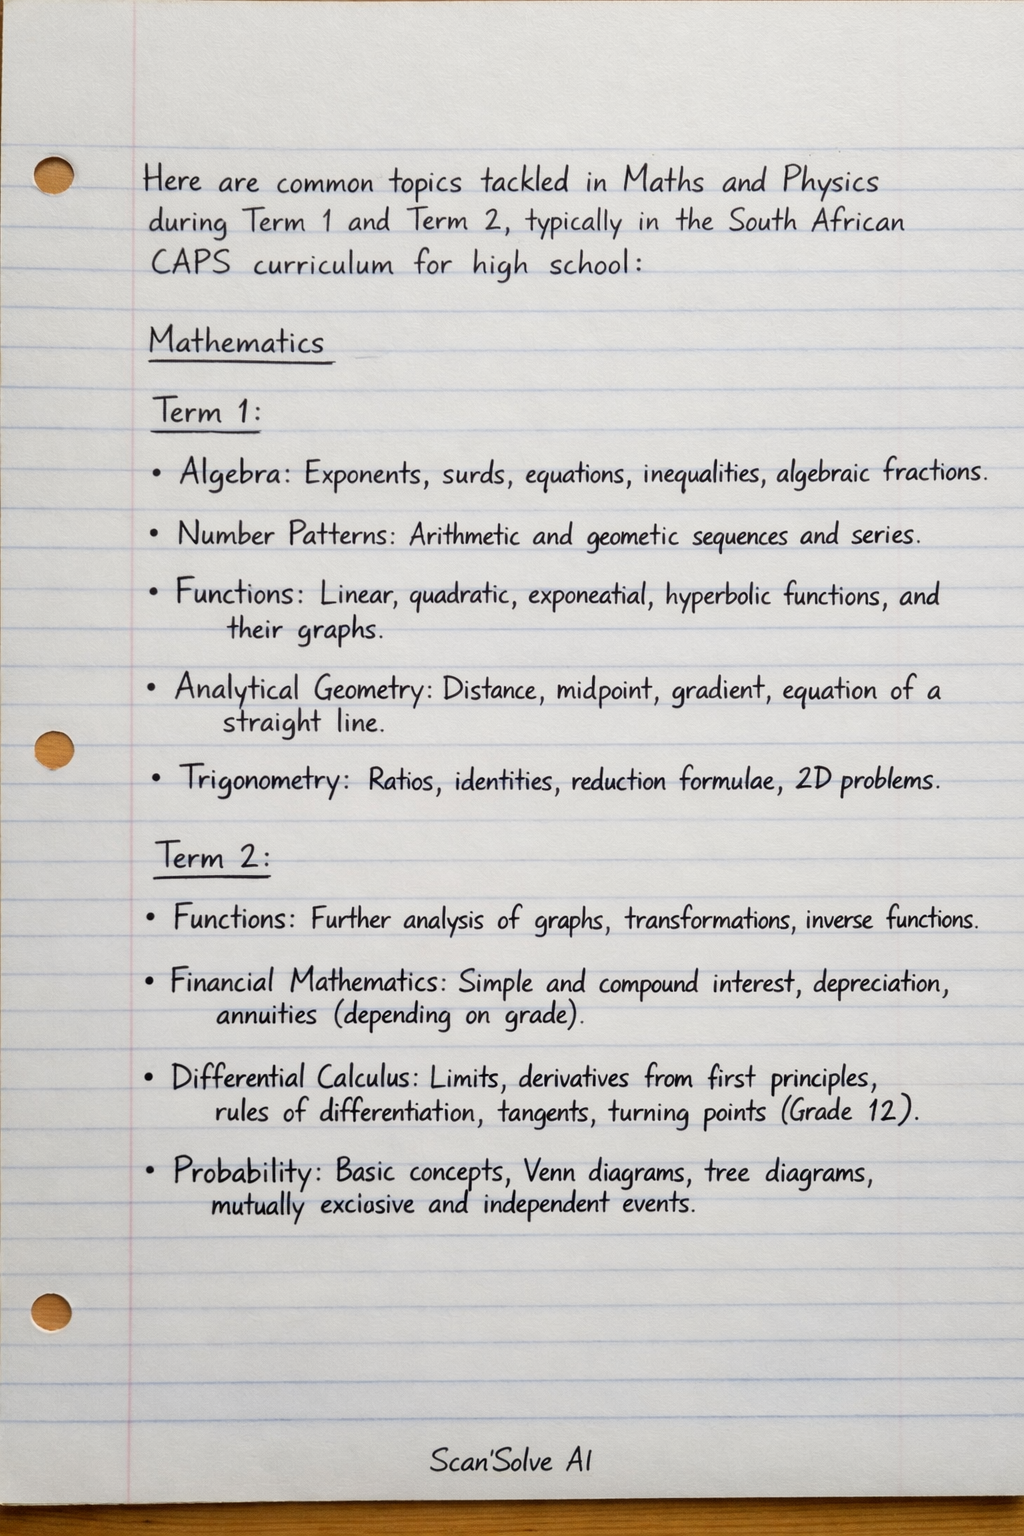 Here are common topics tackled in Maths and Physics
during Term 1 and Term 2, typically in the South African
CAPS curriculum for high school:
Mathematics
Term 1:
• Algebra: Exponents, surds, equations, inequalities, algebraic fractions.
• Number Patterns: Arithmetic and geometic sequences and series.
• Functions: Linear, quadratic, exponeatial, hyperbolic functions, and
their graphs.
• Analytical Geometry: Distance, midpoint, gradient, equation of a
straight line.
• Trigonometry: Ratios, identities, reduction formulae, 2D problems.
Term 2:
• Functions: Further analysis of graphs, transformations, inverse functions.
• Financial Mathematics: Simple and compound interest, depreciation,
annuities (depending on grade).
• Differential Calculus: Limits, derivatives from first principles,
rules of differentiation, tangents, turning points (Grade 12).
• Probability: Basic concepts, Venn diagrams, tree diagrams,
mutually exciosive and independent events.
Scan'Solve AI